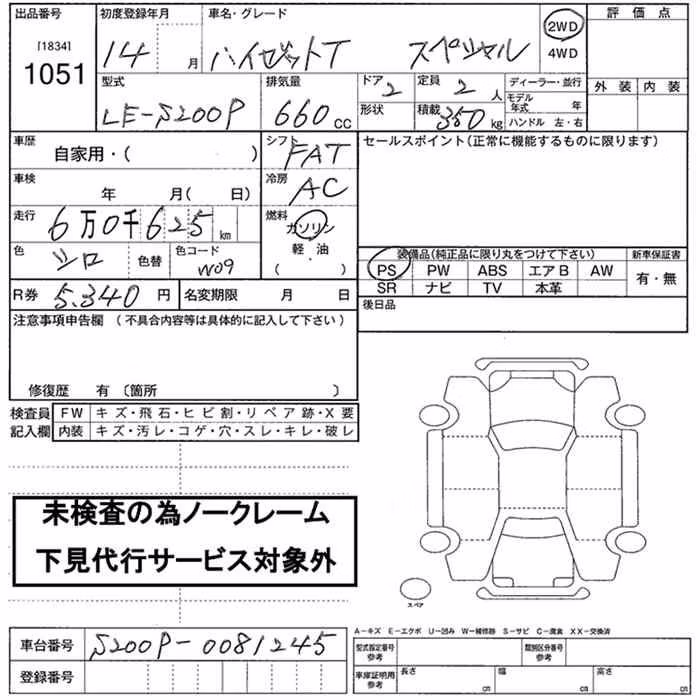 出品番号 初度登録年月 車名・グレード 評価点
[1834]
1051 14 月 ハイゼットT スペシャル 2WD
4WD
型式 排気量 ドア 定員 ディーラー・並行 外装 内装
LE-S200P 660 CC 2 2 人 モデル年式 年
形状 積載 350 kg ハンドル 左・右
車歴 シフト セールスポイント(正常に機能するものに限ります)
自家用・( ) FAT
車検 冷房
年 月( 日) AC
走行 6万0千625 km 燃料
ガソリン
軽・油
色 シロ 色替 色コード W09 装備品(純正品に限り丸をつけて下さい) 新車保証書
PS PW ABS エアB AW 有・無
SR ナビ TV 本革
R券 5,340 円 名変期限 月 日 後日品
注意事項申告欄 (不具合内容等は具体的に記入して下さい)
修復歴 有 〔箇所 〕
検査員 FW キズ・飛石・ヒビ割・リペア跡・X要
記入欄 内装 キズ・汚レ・コゲ・穴・スレ・キレ・破レ
未検査の為ノークレーム
下見代行サービス対象外
スペア
A-キズ E-エクボ U-凹み W-補修跡 S-サビ C-腐食 XX-交換済
車台番号 S200P-0081245 型式指定番号 参考 類別区分番号 参考
登録番号 車庫証明用 参考 長さ cm 幅 cm 高さ cm